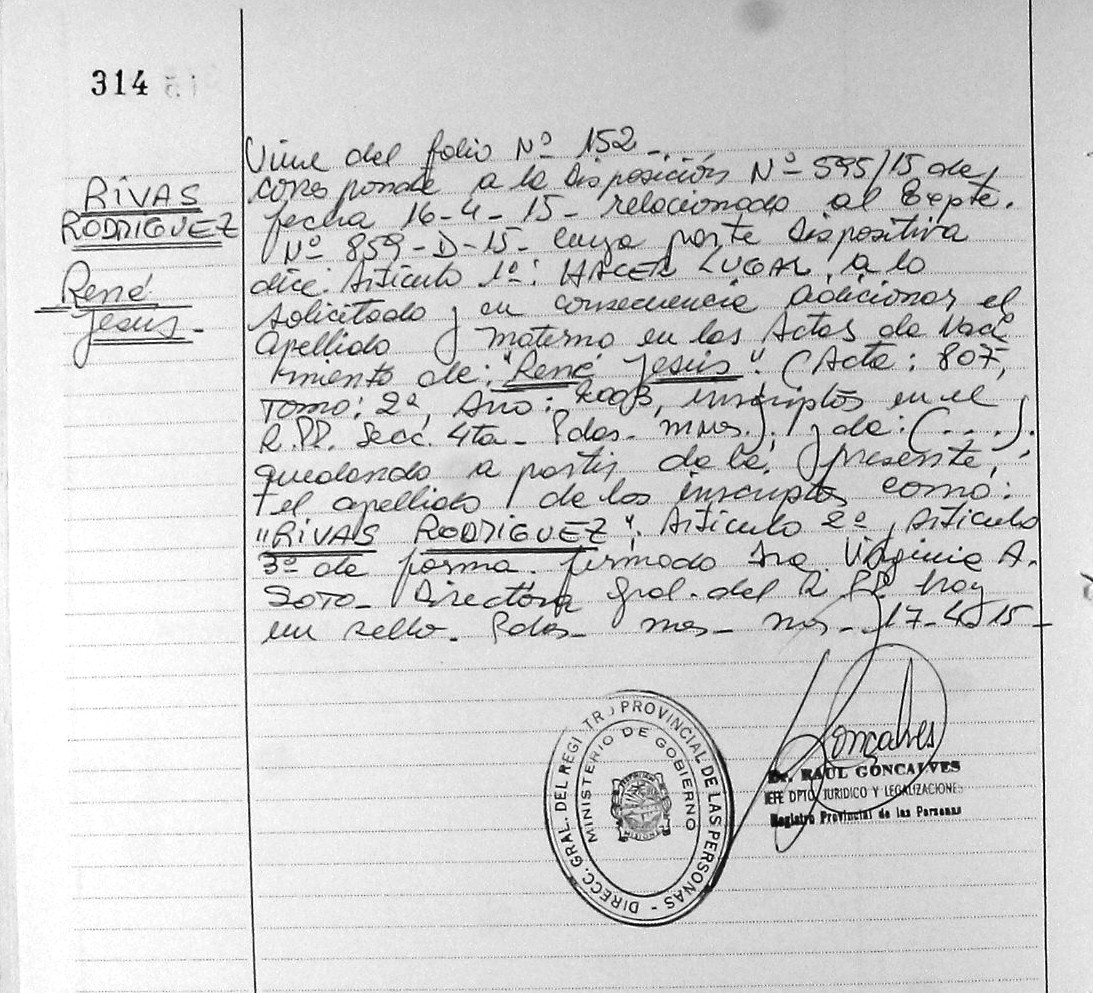 314
RIVAS
RODRIGUEZ
René
Jesús -
Viene del folio Nº 152 -
corresponde a la Disposición Nº 595/15 de
fecha 16-4-15- relacionado al Expte.
Nº 859-D-15- cuya parte dispositiva
dice: Artículo 1º: HACER LUGAR, a lo
solicitado y en consecuencia adicionar el
apellido materno en las Actas de Naci
miento de: "René Jesús". (Acta: 807,
Tomo: 2º, Año: 2003, inscriptos en el
R.PP. Secc. 4ta- Pdas- mnes.) y de: (...).
quedando a partir de la presente,
el apellido de los inscriptos como:
"RIVAS RODRIGUEZ". Artículo 2º, Artículo
3º de forma. firmado Dra. Virginia A.
SOTO- Directora Gral. del R.PP. hay
un sello. Pdas- mnes- mns- 17-4-15-
Goncalves
Dr. RAUL GONCALVES
JEFE DPTO. JURIDICO Y LEGALIZACIONES
Registro Provincial de las Personas
DIRECC. GRAL. DEL REGISTRO PROVINCIAL DE LAS PERSONAS -
MINISTERIO DE GOBIERNO
MISIONES